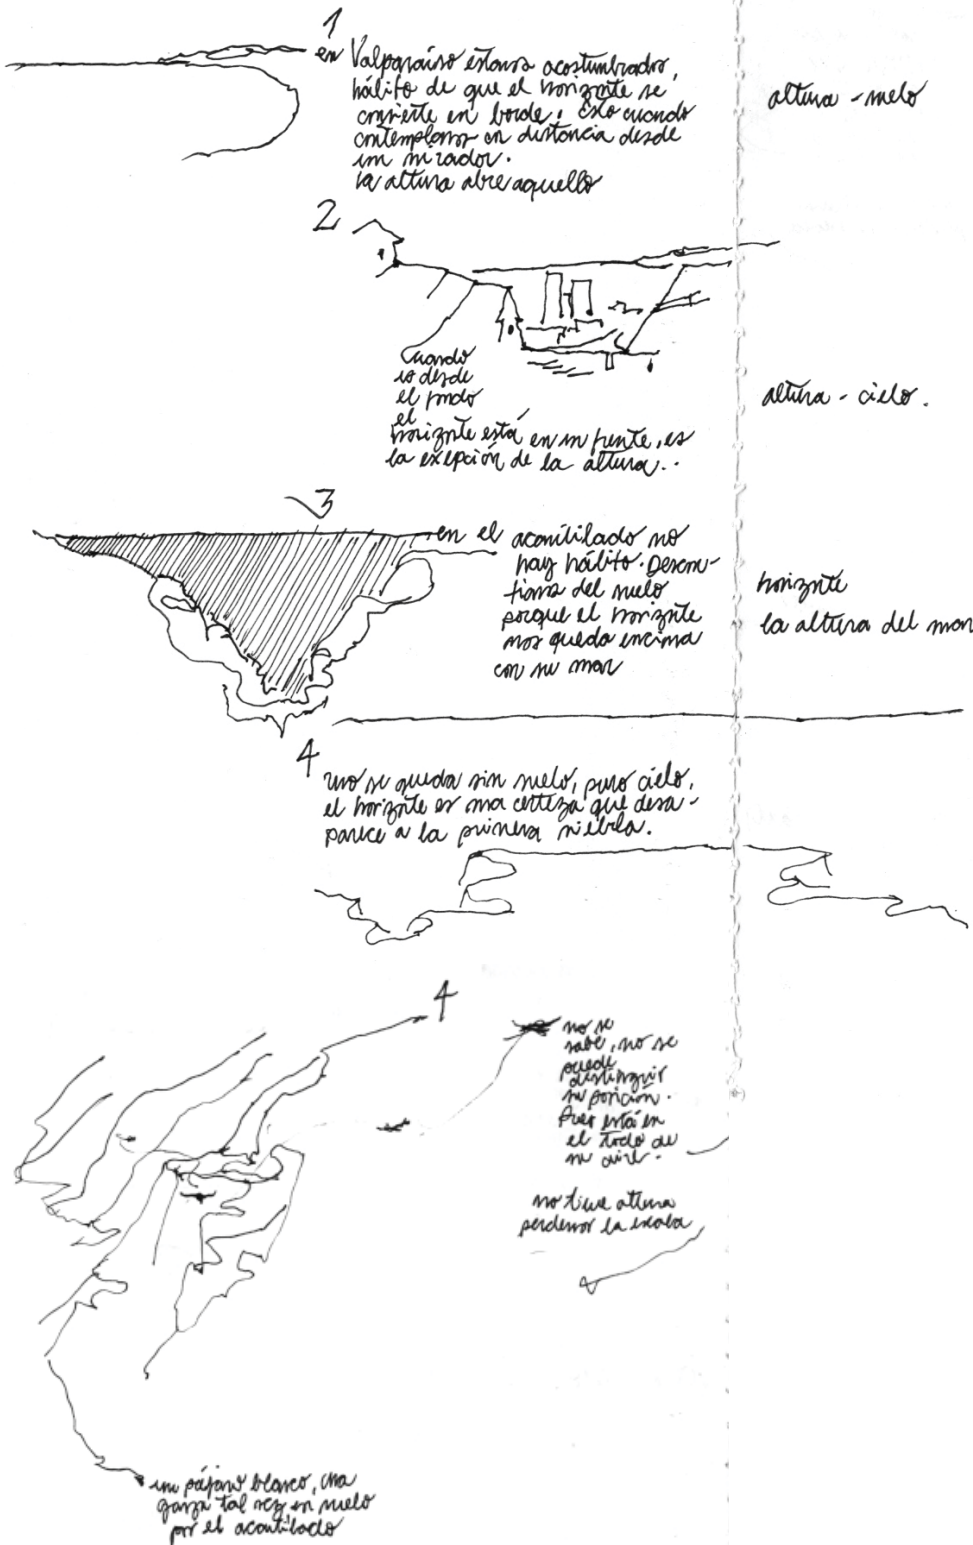 1
en Valparaíso estamos acostumbrados,
hábito de que el horizonte se
convierte en borde, esto cuando
contemplamos en distancia desde
un mirador.
la altura abre aquello
altura - suelo
2
Cuando
es desde
el fondo
el
horizonte está en su frente, es
la exepción de la altura..
altura - cielo.
3
en el acantilado no
hay hábito. Descon-
fiamos del suelo
porque el horizonte
nos queda encima
con su mar
horizonte
la altura del mar
4
uno se queda sin suelo, puro cielo,
el horizonte es una certeza que desa-
parece a la primera niebla.
4
no se
sabe, no se
puede
distinguir
su posición.
Pues está en
el todo de
su aire.
no tiene altura
perdemos la escala
un pájaro blanco, una
garza tal vez en vuelo
por el acantilado